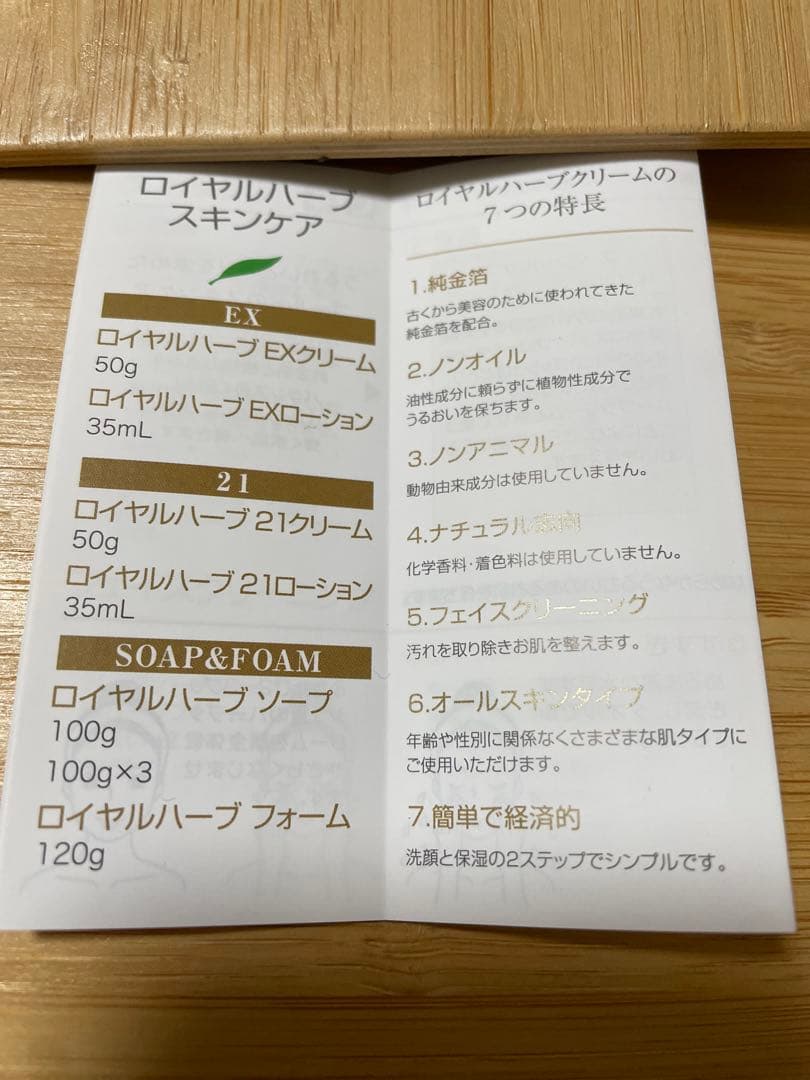 ロイヤルハーブ
スキンケア
EX
ロイヤルハーブ EXクリーム
50g
ロイヤルハーブ EXローション
35mL
21
ロイヤルハーブ 21クリーム
50g
ロイヤルハーブ 21ローション
35mL
SOAP&FOAM
ロイヤルハーブ ソープ
100g
100g×3
ロイヤルハーブ フォーム
120g
ロイヤルハーブクリームの
7つの特長
1.純金箔
古くから美容のために使われてきた
純金箔を配合。
2.ノンオイル
油性成分に頼らずに植物性成分で
うるおいを保ちます。
3.ノンアニマル
動物由来成分は使用していません。
4.ナチュラル志向
化学香料・着色料は使用していません。
5.フェイスクリーニング
汚れを取り除きお肌を整えます。
6.オールスキンタイプ
年齢や性別に関係なくさまざまな肌タイプに
ご使用いただけます。
7.簡単で経済的
洗顔と保湿の2ステップでシンプルです。